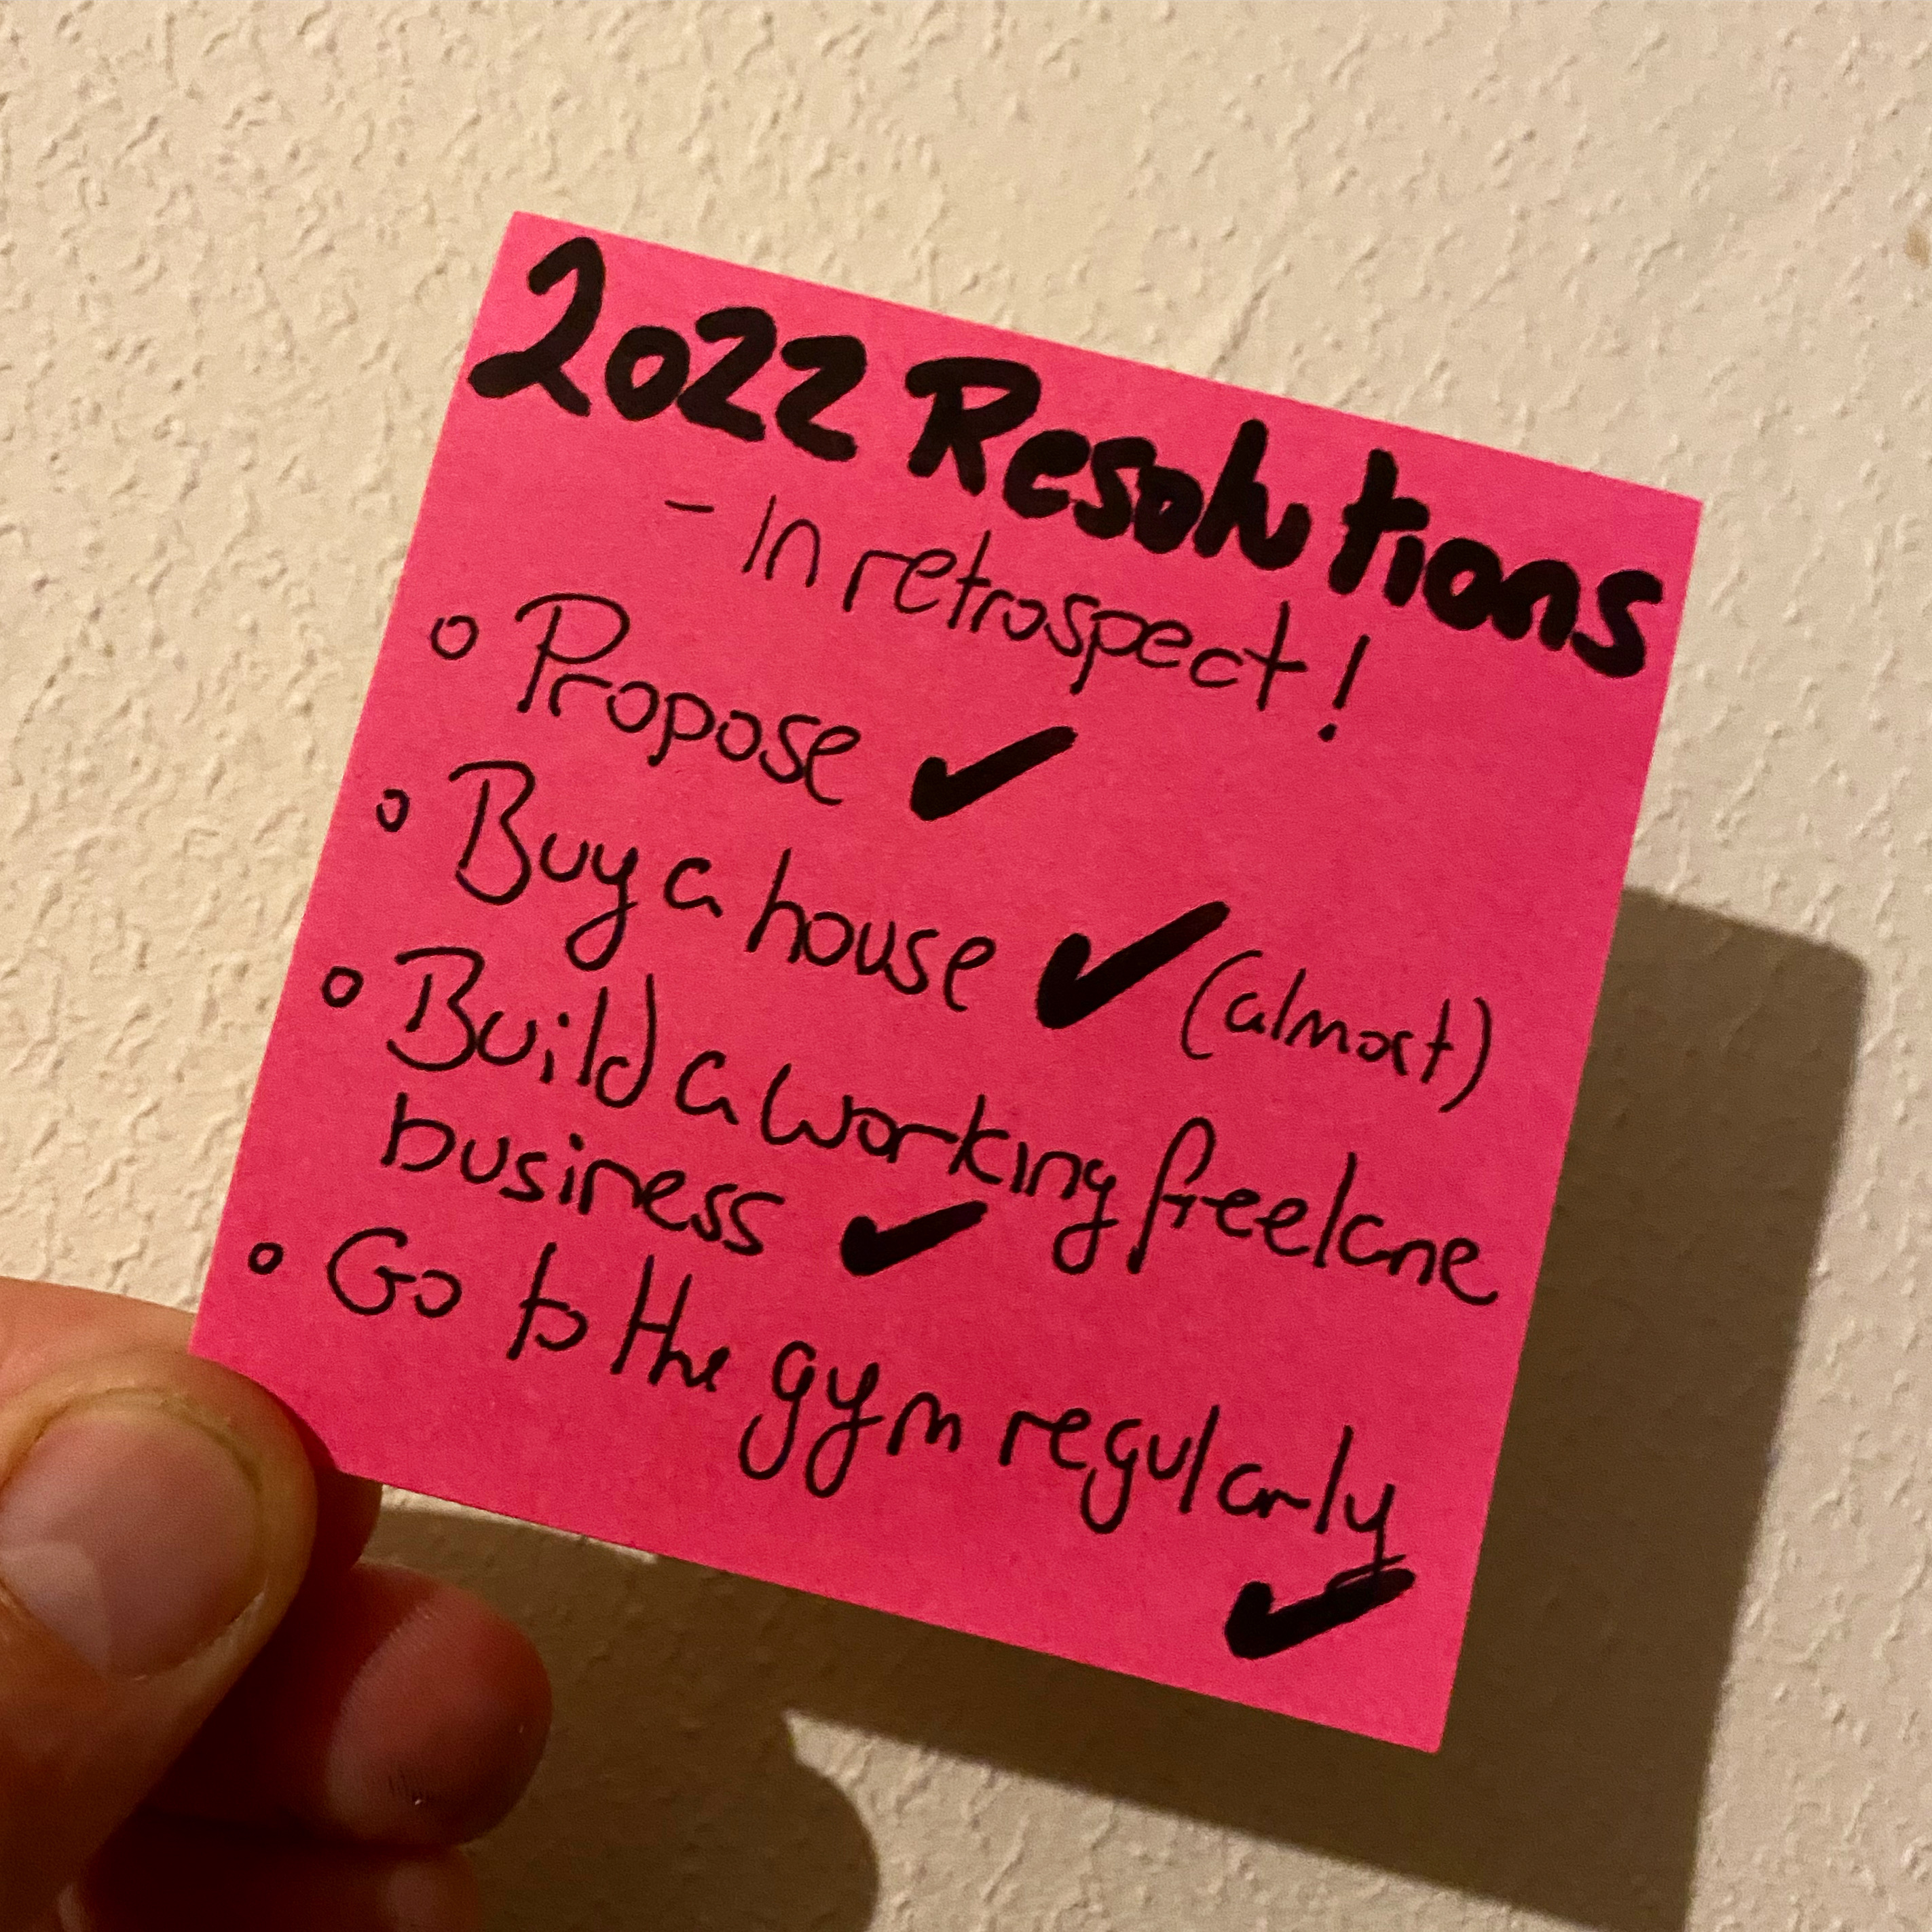 2022 Resolutions
- In retrospect!
o Propose ✔
o Buy a house ✔ (almost)
o Build a working freelane
business ✔
o Go to the gym regularly
✔